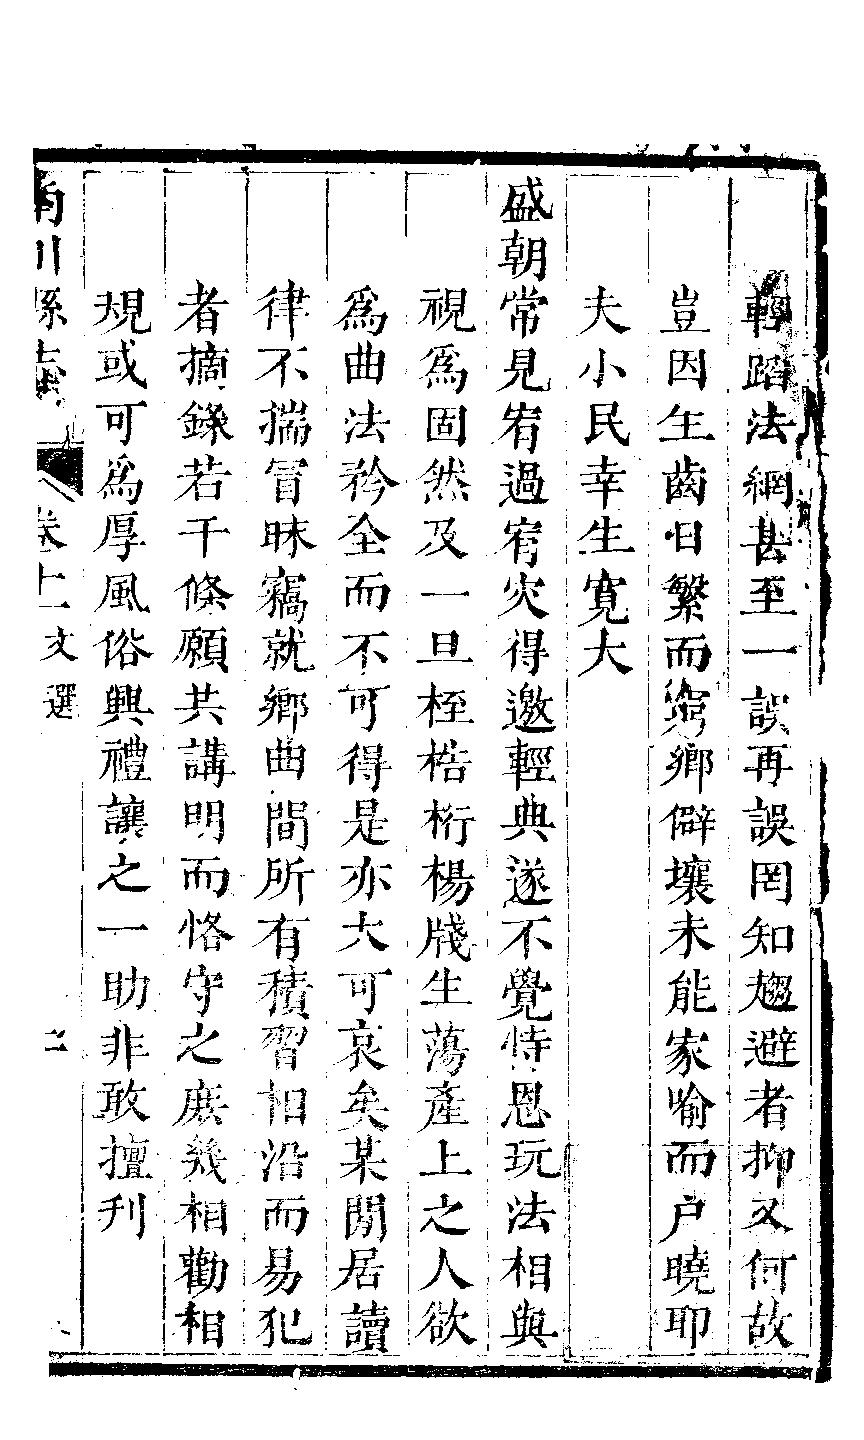 輕蹈法網甚至一誤再誤罔知趨避者抑又何故
豈因生齒日繁而窮鄉僻壤未能家喻而户曉耶
夫小民幸生寬大
盛朝常見宥過宥灾得邀輕典遂不覺恃恩玩法相與
視爲固然及一旦桎梏桁楊戕生蕩產上之人欲
爲曲法矜全而不可得是亦大可哀矣某閒居讀
律不揣冒昧竊就鄉曲間所有積習相沿而易犯
者摘錄若干條願共講明而恪守之庶幾相勸相
規或可爲厚風俗興禮讓之一助非敢擅刋
南川縣志
卷十一文選
二